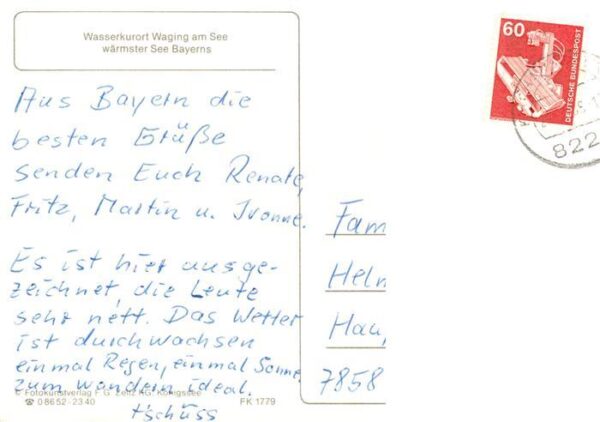 Wasserkurort Waging am See
wärmster See Bayerns
Aus Bayern die
besten Grüße
senden Euch Renate,
Fritz, Martin u. Ivonne.
Es ist hier ausge-
zeichnet, die Leute
sehr nett. Das Wetter
ist durchwachsen
einmal Regen, einmal Sonne.
Zum wandern ideal.
tschüss
© Fotokunstverlag F. G. Zeitz KG, Königssee
☎ 0 86 52 - 23 40
FK 1779
60
DEUTSCHE BUNDESPOST
822
Fam
Helm
Hau
7858